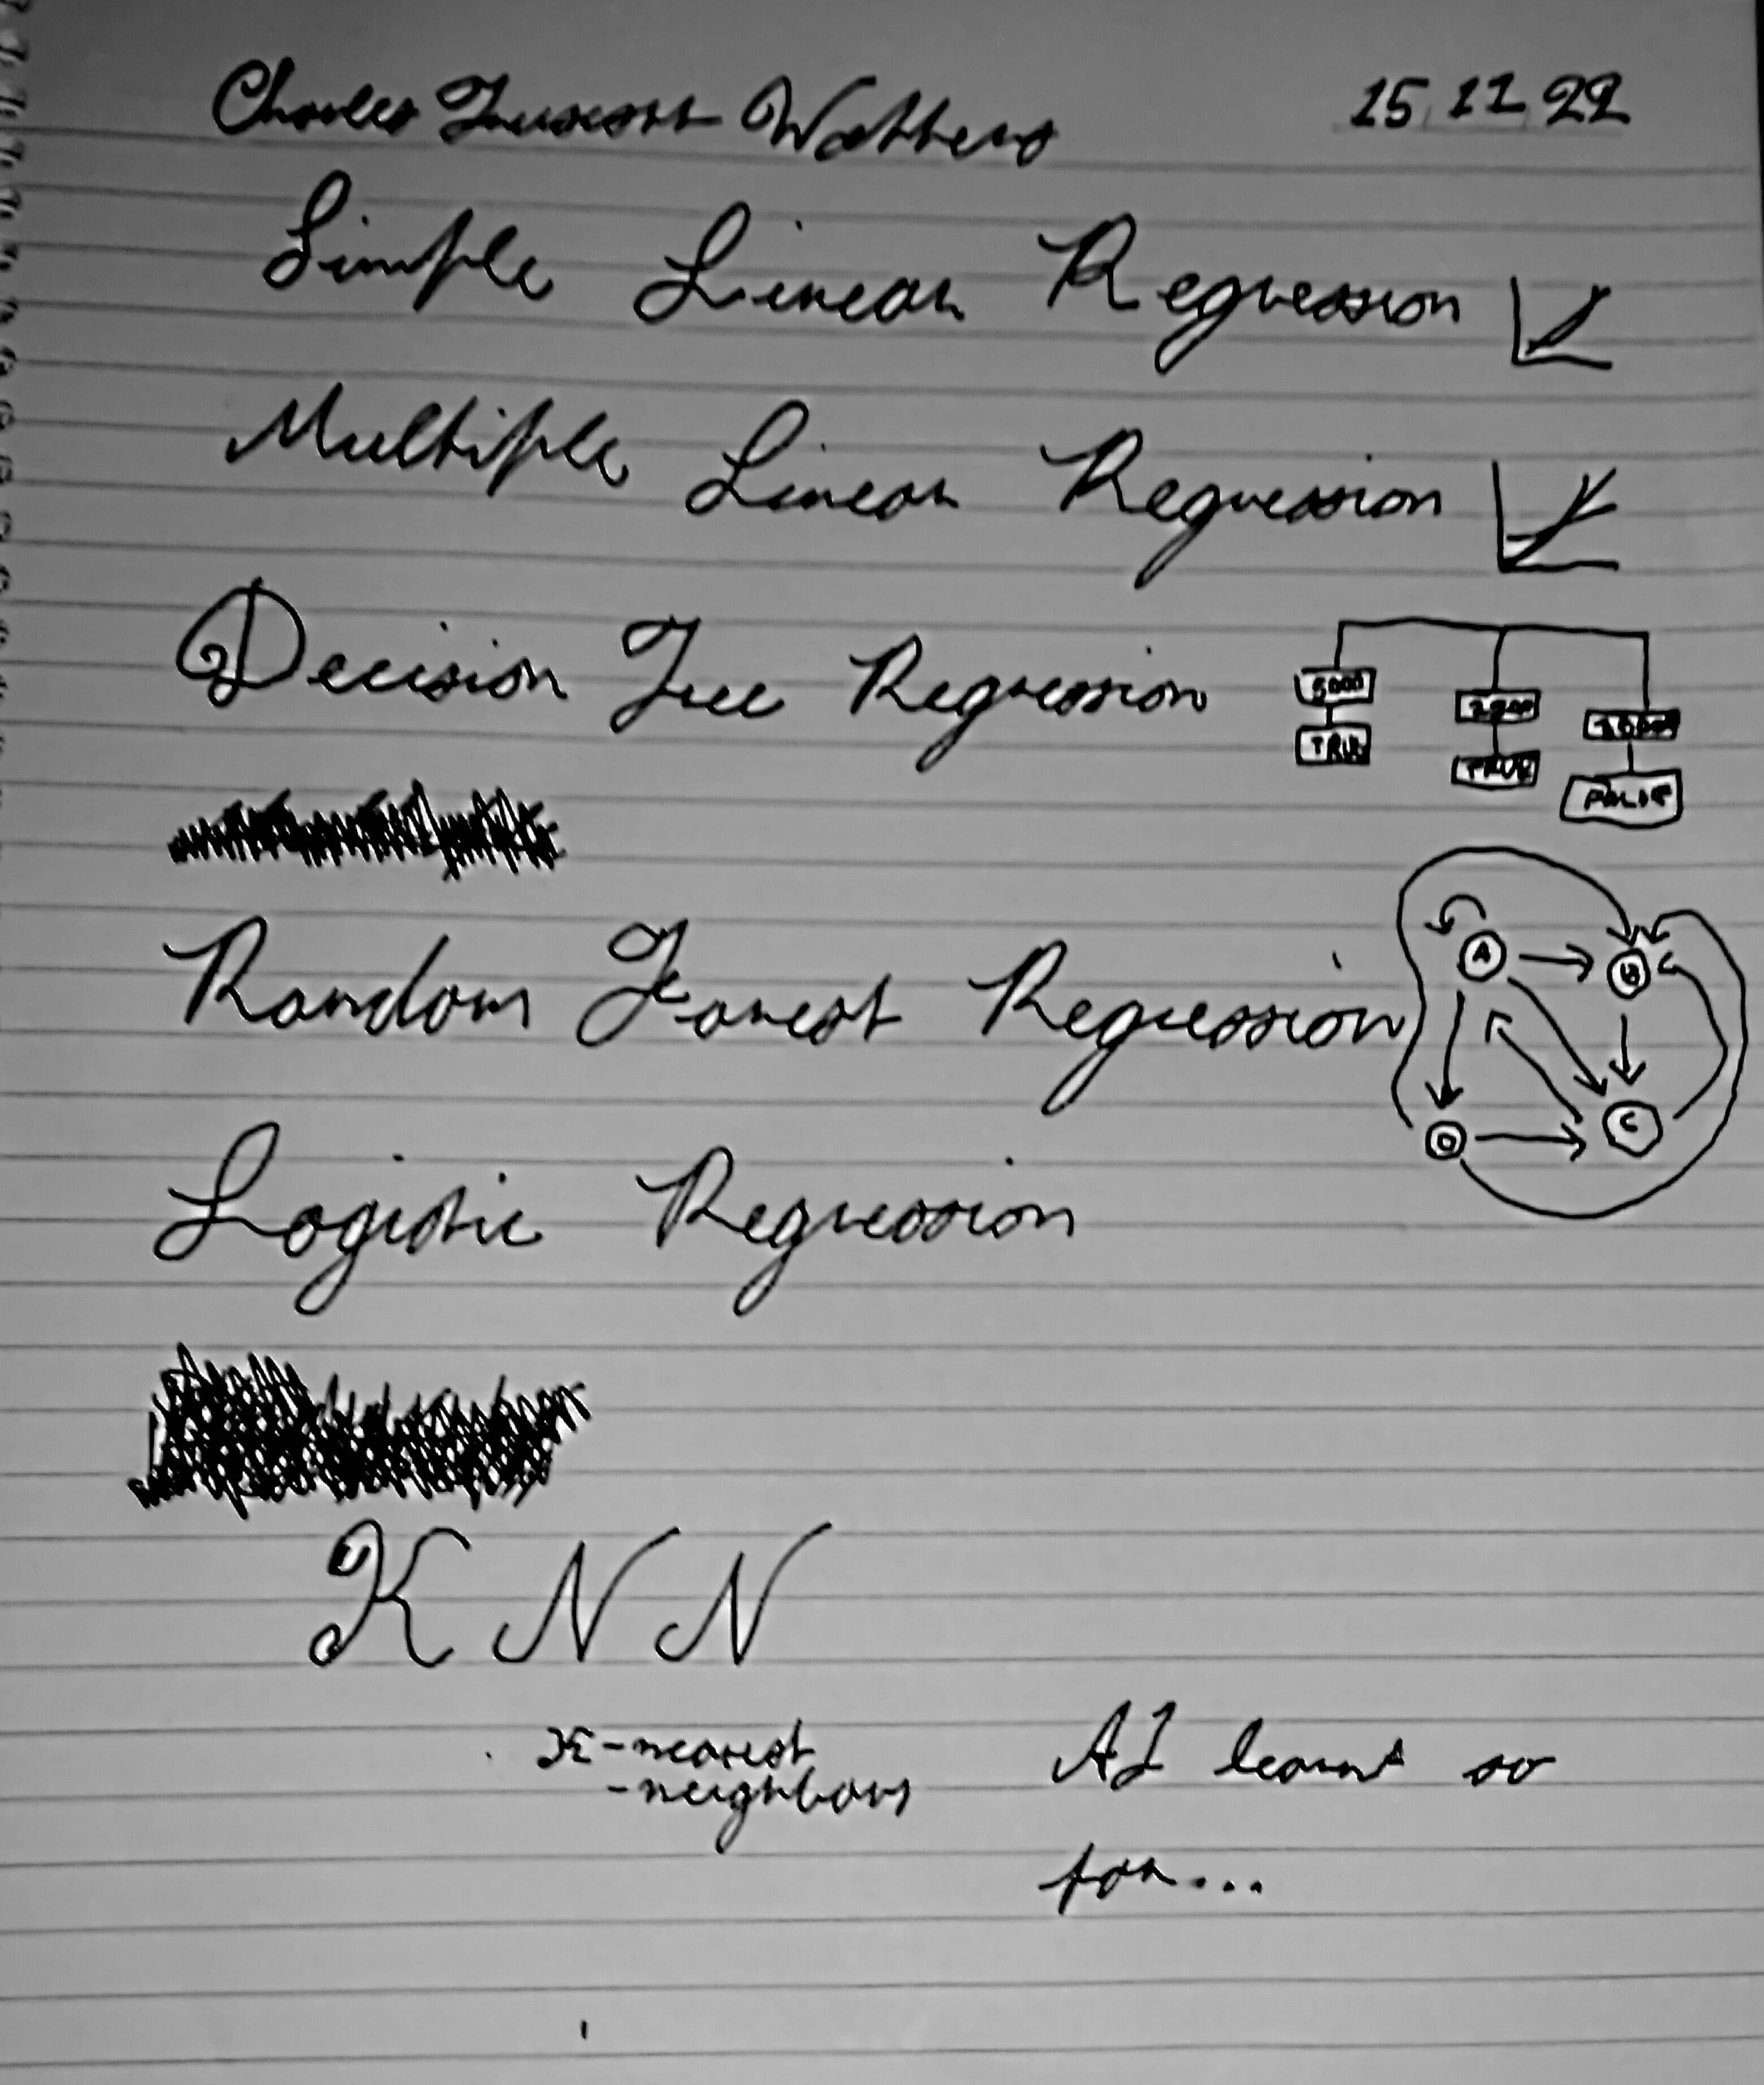 Charles Truscott Watters 15 11 22
Simple Linear Regression
Multiple Linear Regression
Decision Tree Regression
5000
TRUE
TRUE
FALSE
Random Forest Regression
A B
D C
Logistic Regression
KNN
K-nearest
-neighbors
AI learnt so
far...